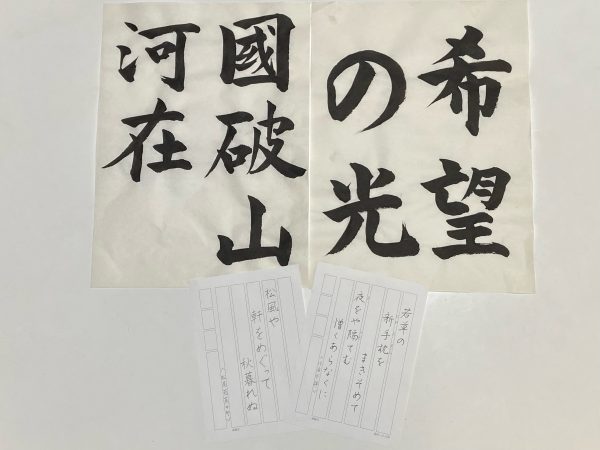 希望
の光
國破山
河在
若草の
新手枕を
まきそめて
夜をや隔てむ
憎くあらなくに
松風や
軒をめぐって
秋暮れぬ